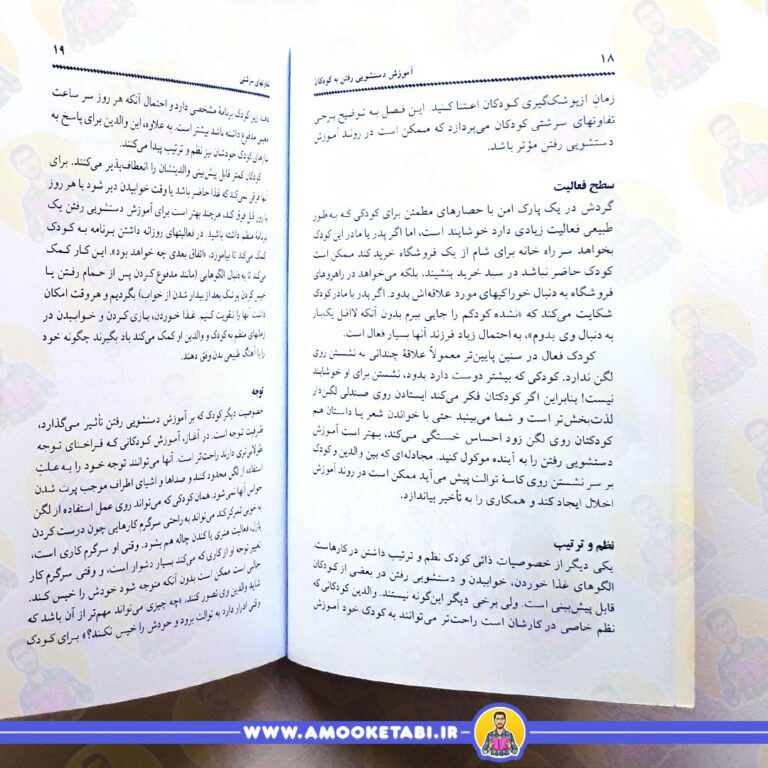 ۱۸
آموزش دستشویی رفتن به کودکان
زمانِ ازپوشک‌گیری کودکان اعتنا کنید. این فصل به توضیح برخی
تفاوتهای سرشتی کودکان می‌پردازد که ممکن است در روند آموزش
دستشویی رفتن مؤثر باشد.
سطح فعالیت
گردش در یک پارک امن با حصارهای مطمئن برای کودکی که به‌طور
طبیعی فعالیت زیادی دارد خوشایند است، اما اگر پدر یا مادر این کودک
بخواهد سر راه خانه برای شام از یک فروشگاه خرید کند ممکن است
کودک حاضر نباشد در سبد خرید بنشیند، بلکه می‌خواهد در راهروهای
فروشگاه به دنبال خوراکیهای مورد علاقه‌اش بدود. اگر پدر یا مادر کودک
شکایت می‌کند که «نشده کودکم را جایی ببرم بدون آنکه لااقل یک‌بار
به دنبال وی بدوم»، به احتمال زیاد فرزند آنها بسیار فعال است.
کودک فعال در سنین پایین‌تر معمولاً علاقهٔ چندانی به نشستن روی
لگن ندارد. کودکی که بیشتر دوست دارد بدود، نشستن برای او خوشایند
نیست! بنابراین اگر کودکتان فکر می‌کند ایستادن روی صندلی لگن‌دار
لذت‌بخش‌تر است و شما می‌بینید حتی با خواندن شعر یا داستان هم
کودکتان روی لگن زود احساس خستگی می‌کند، بهتر است آموزش
دستشویی رفتن را به آینده موکول کنید. مجادله‌ای که بین والدین و کودک
بر سر نشستن روی کاسهٔ توالت پیش می‌آید ممکن است در روند آموزش
اخلال ایجاد کند و همکاری را به تأخیر بیاندازد.
نظم و ترتیب
یکی دیگر از خصوصیات ذاتی کودک نظم و ترتیب داشتن در کارهاست.
الگوهای غذا خوردن، خوابیدن و دستشویی رفتن در بعضی از کودکان
قابل پیش‌بینی است. ولی برخی دیگر این‌گونه نیستند. والدین کودکانی که
نظم خاصی در کارشان است راحت‌تر می‌توانند به کودک خود آموزش
۱۹
تفاوتهای سرشتی
دهند زیرا کودک برنامهٔ مشخصی دارد و احتمال آنکه هر روز سر ساعت
معینی مدفوع داشته باشد بیشتر است. به علاوه، این والدین برای پاسخ به
نیازهای کودک خودشان نیز نظم و ترتیب پیدا می‌کنند.
کودکان کمتر قابل پیش‌بینی والدینشان را انعطاف‌پذیر می‌کنند. برای
آنها فرقی نمی‌کند که غذا حاضر باشد یا وقت خوابیدن دیر شود یا هر روز
با روز قبل فرق کند، هرچند بهتر است برای آموزش دستشویی رفتن یک
برنامهٔ منظم داشته باشید. در فعالیتهای روزانه داشتن برنامه به کودک
کمک می‌کند تا بیاموزد، «اتفاق بعدی چه خواهد بود». این کار کمک
می‌کند تا به دنبال الگوهایی (مانند مدفوع کردن پس از حمام رفتن یا
خیس کردن پوشک بعد از بیدار شدن از خواب) بگردیم و هر وقت امکان
داشت آنها را تقویت کنیم. غذا خوردن، بازی کردن و خوابیدن در
زمانهای منظم به کودک و والدین او کمک می‌کند یاد بگیرند چگونه خود
را با آهنگ طبیعی بدن وفق دهند.
توجه
خصوصیت دیگر کودک که بر آموزش دستشویی رفتن تأثیر می‌گذارد،
ظرفیت توجه است. در آغاز، آموزش کودکانی که فراخنای توجه
طولانی‌تری دارند راحت‌تر است. آنها می‌توانند توجه خود را به علتِ
استفاده از لگن محدود کنند و صداها و اشیای اطراف موجب پرت شدن
حواس آنها نمی‌شود. همان کودکی که می‌تواند روی عمل استفاده از لگن
به خوبی تمرکز کند می‌تواند به راحتی سرگرم کارهایی چون درست کردن
پازل، فعالیت هنری یا کندن چاله هم بشود. وقتی او سرگرم کاری است،
تغییر توجه او از کاری که می‌کند بسیار دشوار است، و وقتی سرگرم کار
جالبی است ممکن است بدون آنکه متوجه شود خودش را خیس کند.
شاید والدین وی تصور کنند، «چه چیزی می‌تواند مهم‌تر از آن باشد که
وقتی ادرار دارد به توالت برود و خودش را خیس نکند؟» برای کودک
WWW.AMOOKETABI.IR